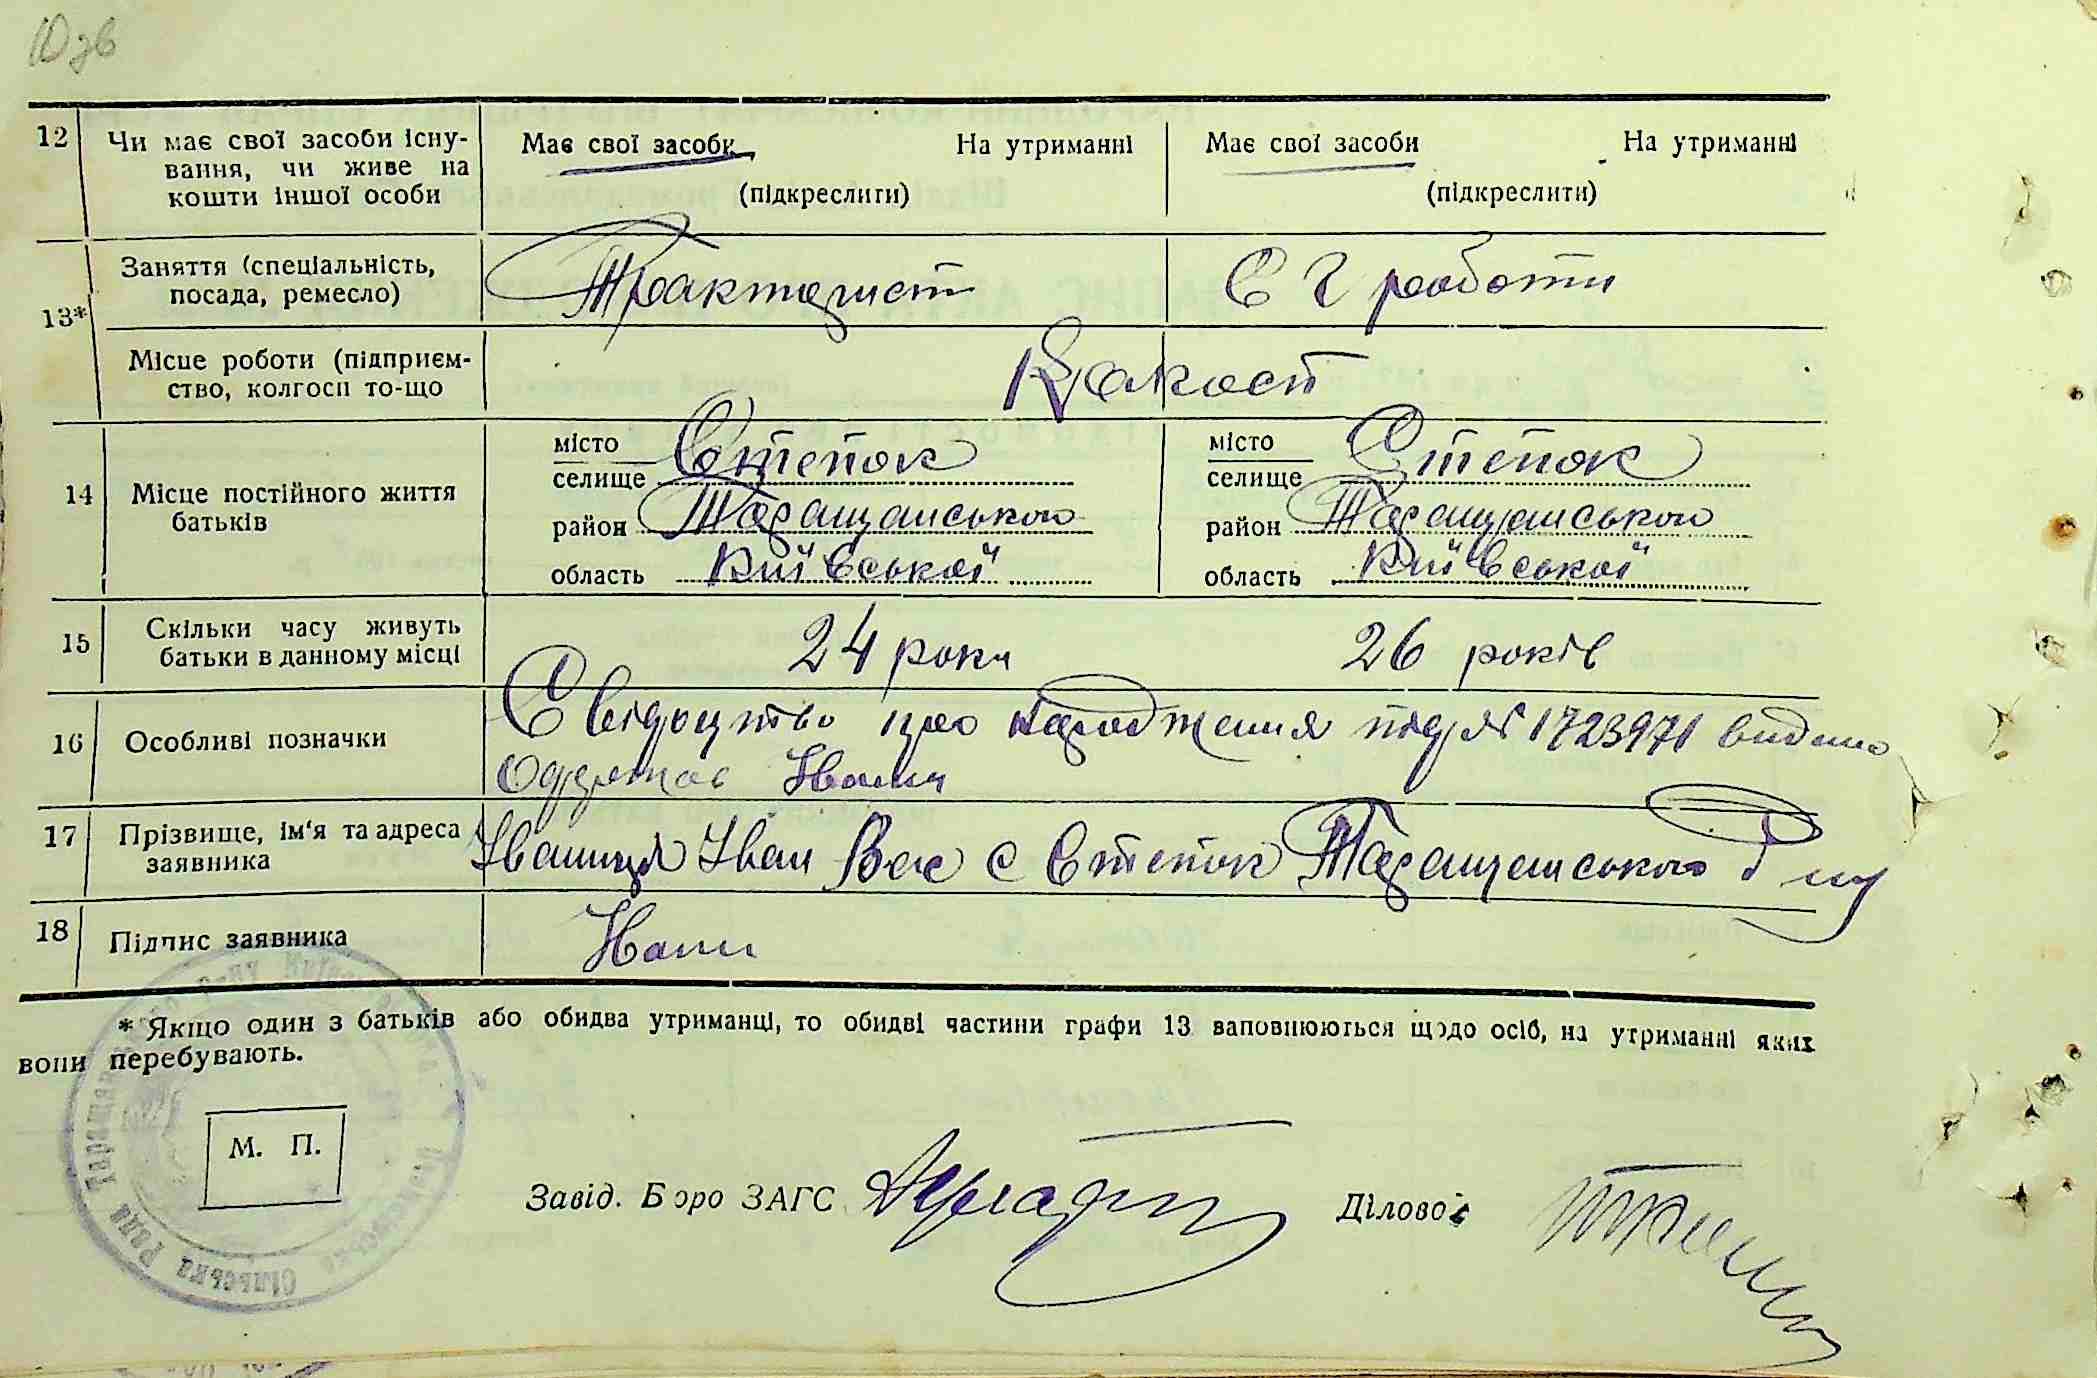 10 зв
12 Чи має свої засоби існу-
вання, чи живе на
кошти іншої особи
Має свої засоби На утриманні
(підкреслити)
Має свої засоби На утриманні
(підкреслити)
13* Заняття (спеціальність,
посада, ремесло)
Тракторист
С г роботи
Місце роботи (підприєм-
ство, колгосп то-що
Колгосп
14 Місце постійного життя
батьків
місто
селище Степок
район Таращанського
область Київської
місто
селище Степок
район Таращанського
область Київської
15 Скільки часу живуть
батьки в данному місці
24 роки
26 років
16 Особливі позначки
Свідоцтво про народження під № 1723971 видано
Іваниця
17 Прізвище, ім'я та адреса
заявника
Іваниця Іван Вас с Степок Таращанського р ну
18 Підпис заявника
* Якщо один з батьків або обидва утриманці, то обидві частини графи 13 заповнюються щодо осіб, на утриманні яких
вони перебувають.
М. П.
Завід. Бюро ЗАГС
Діловод
Сільська Рада Таращанського